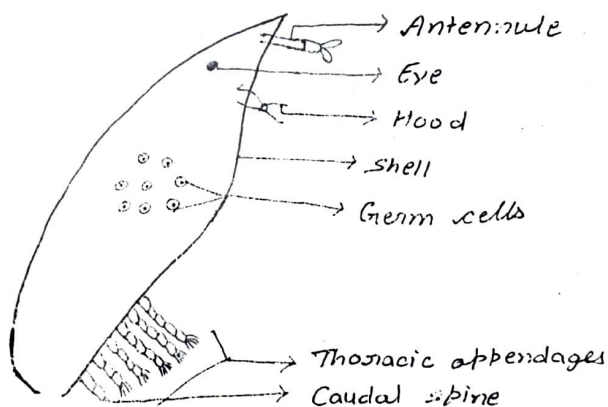 Antennule
Eye
Hood
Shell
Germ cells
Thoracic appendages
Caudal spine